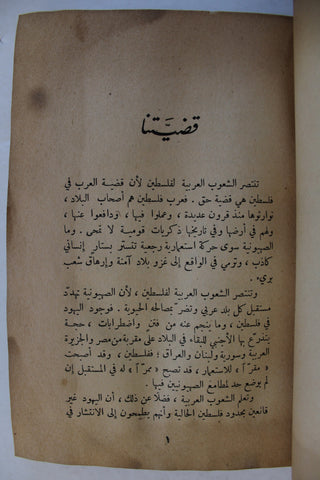 قضيَّتنا
تنتصر الشعوب العربية لفلسطين لأن قضية العرب في
فلسطين هي قضية حق . فعرب فلسطين هم أصحاب البلاد ،
توارثوها منذ قرون عديدة ، وعملوا فيها ، ودافعوا عنها ،
ولهم في أرضها وفي تاريخها ذكريات قومية لا تمحى . وما
الصهيونية سوى حركة استعمارية رجعية تتستر بستار إنساني
كاذب ، وترمي في الواقع إلى غزو بلاد آمنة وإرهاق شعب
بريء .
وتنتصر الشعوب العربية لفلسطين ، لأن الصهيونية تهدّد
مستقبل كل بلد عربي وتضرّ بمصالحه الحيوية . فوجود اليهود
في فلسطين ، وما ينجم عنه من فتن واضطرابات ، حجة
يتذرّع بها الأجنبي للبقاء في البلاد على مقربة من مصر والجزيرة
العربية وسورية ولبنان والعراق ؛ ففلسطين ، وقد أصبحت
« مقرّاً » للاستعمار ، قد تصبح « ممرّاً » له في المستقبل إن
لم يوضع حد لمطامع الصهيونيين فيها .
وتعلم الشعوب العربية ، فضلًا عن ذلك ، أن اليهود غير
قانعين بحدود فلسطين الحالية وأنهم يطمحون إلى الانتشار في
١